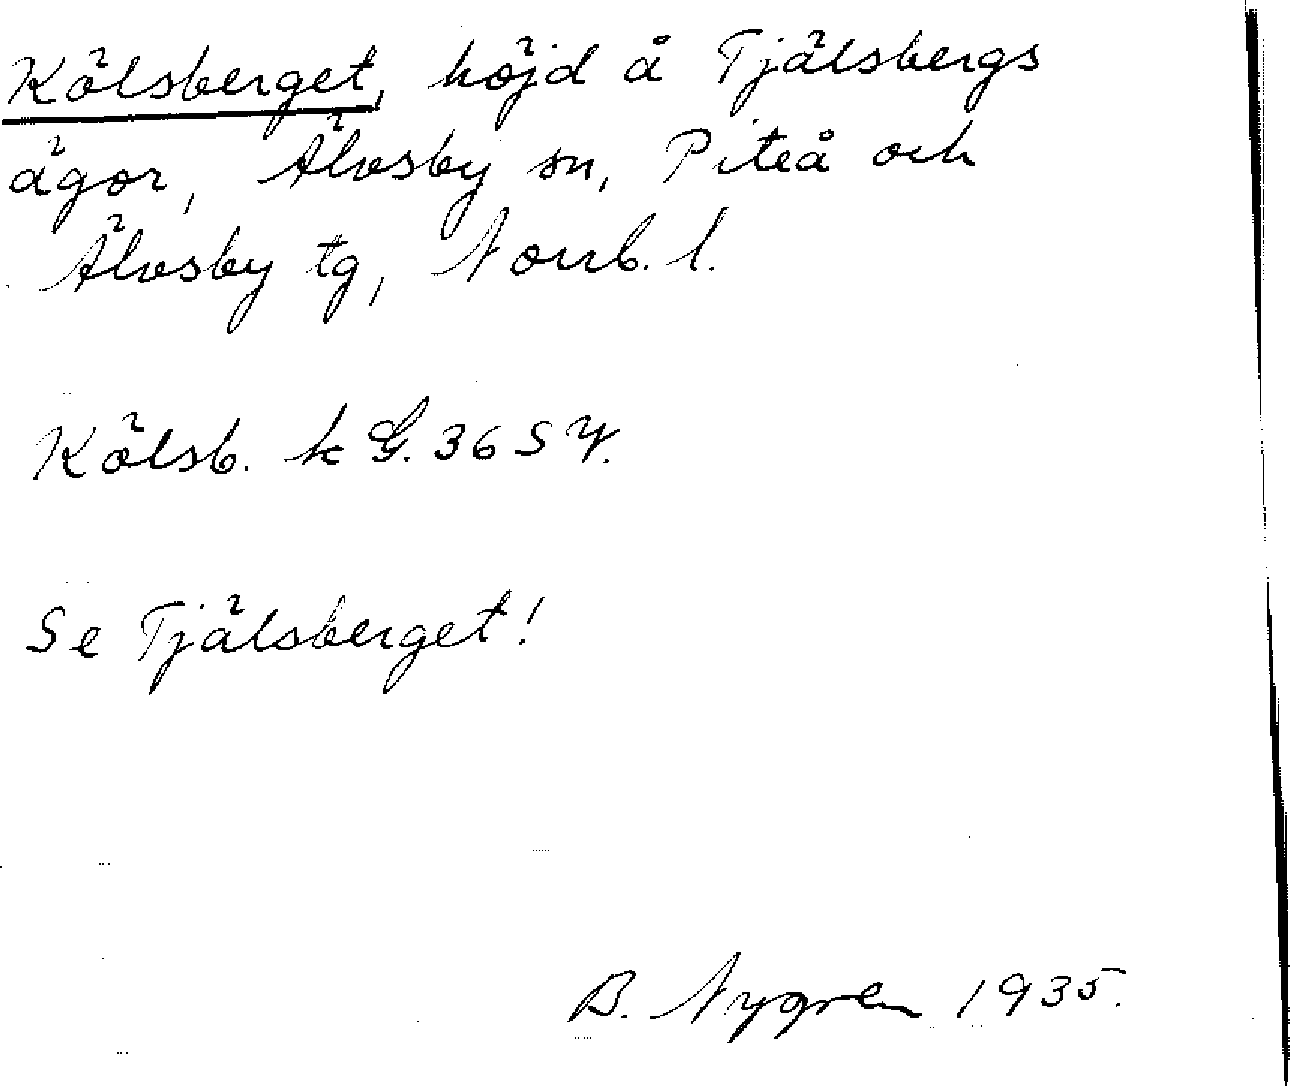 Kälsberget, höjd å Tjälsbergs
ägor, Älvsby sn, Piteå och
Älvsby tg, Norrb. l.
Kälsb. k G. 36 S Y.
Se Tjälsberget!
B. Nygren 1935.